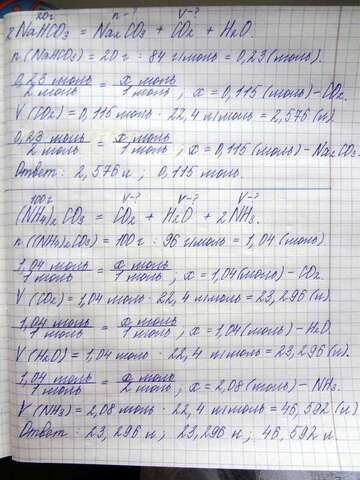 20г n-? V-?
2NaHCO₃ = Na₂CO₃ + CO₂ + H₂O.
n(NaHCO₃) = 20г : 84 г/моль = 0,23(моль).
0,23 моль / 2 моль = x моль / 1 моль ; x = 0,115 (моль) - CO₂.
V(CO₂) = 0,115 моль · 22,4 л/моль = 2,576 (л)
0,23 моль / 2 моль = x моль / 1 моль ; x = 0,115 (моль) - Na₂CO₃.
Ответ: 2,576 л; 0,115 моль.
100г V-? V-? V-?
(NH₄)₂CO₃ = CO₂ + H₂O + 2NH₃.
n((NH₄)₂CO₃) = 100г : 96 г/моль = 1,04 (моль).
1,04 моль / 1 моль = x моль / 1 моль ; x = 1,04(моль) - CO₂.
V(CO₂) = 1,04 моль · 22,4 л/моль = 23,296 (л).
1,04 моль / 1 моль = x моль / 1 моль ; x = 1,04(моль) - H₂O.
V(H₂O) = 1,04 моль · 22,4 л/моль = 23,296 (л).
1,04 моль / 1 моль = x моль / 2 моль ; x = 2,08(моль) - NH₃.
V(NH₃) = 2,08 моль · 22,4 л/моль = 46,592 (л)
Ответ: 23,296 л; 23,296 л; 46,592 л.